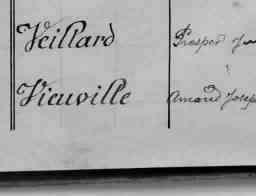 Veillard Prosper
Vieuville Amand Joseph